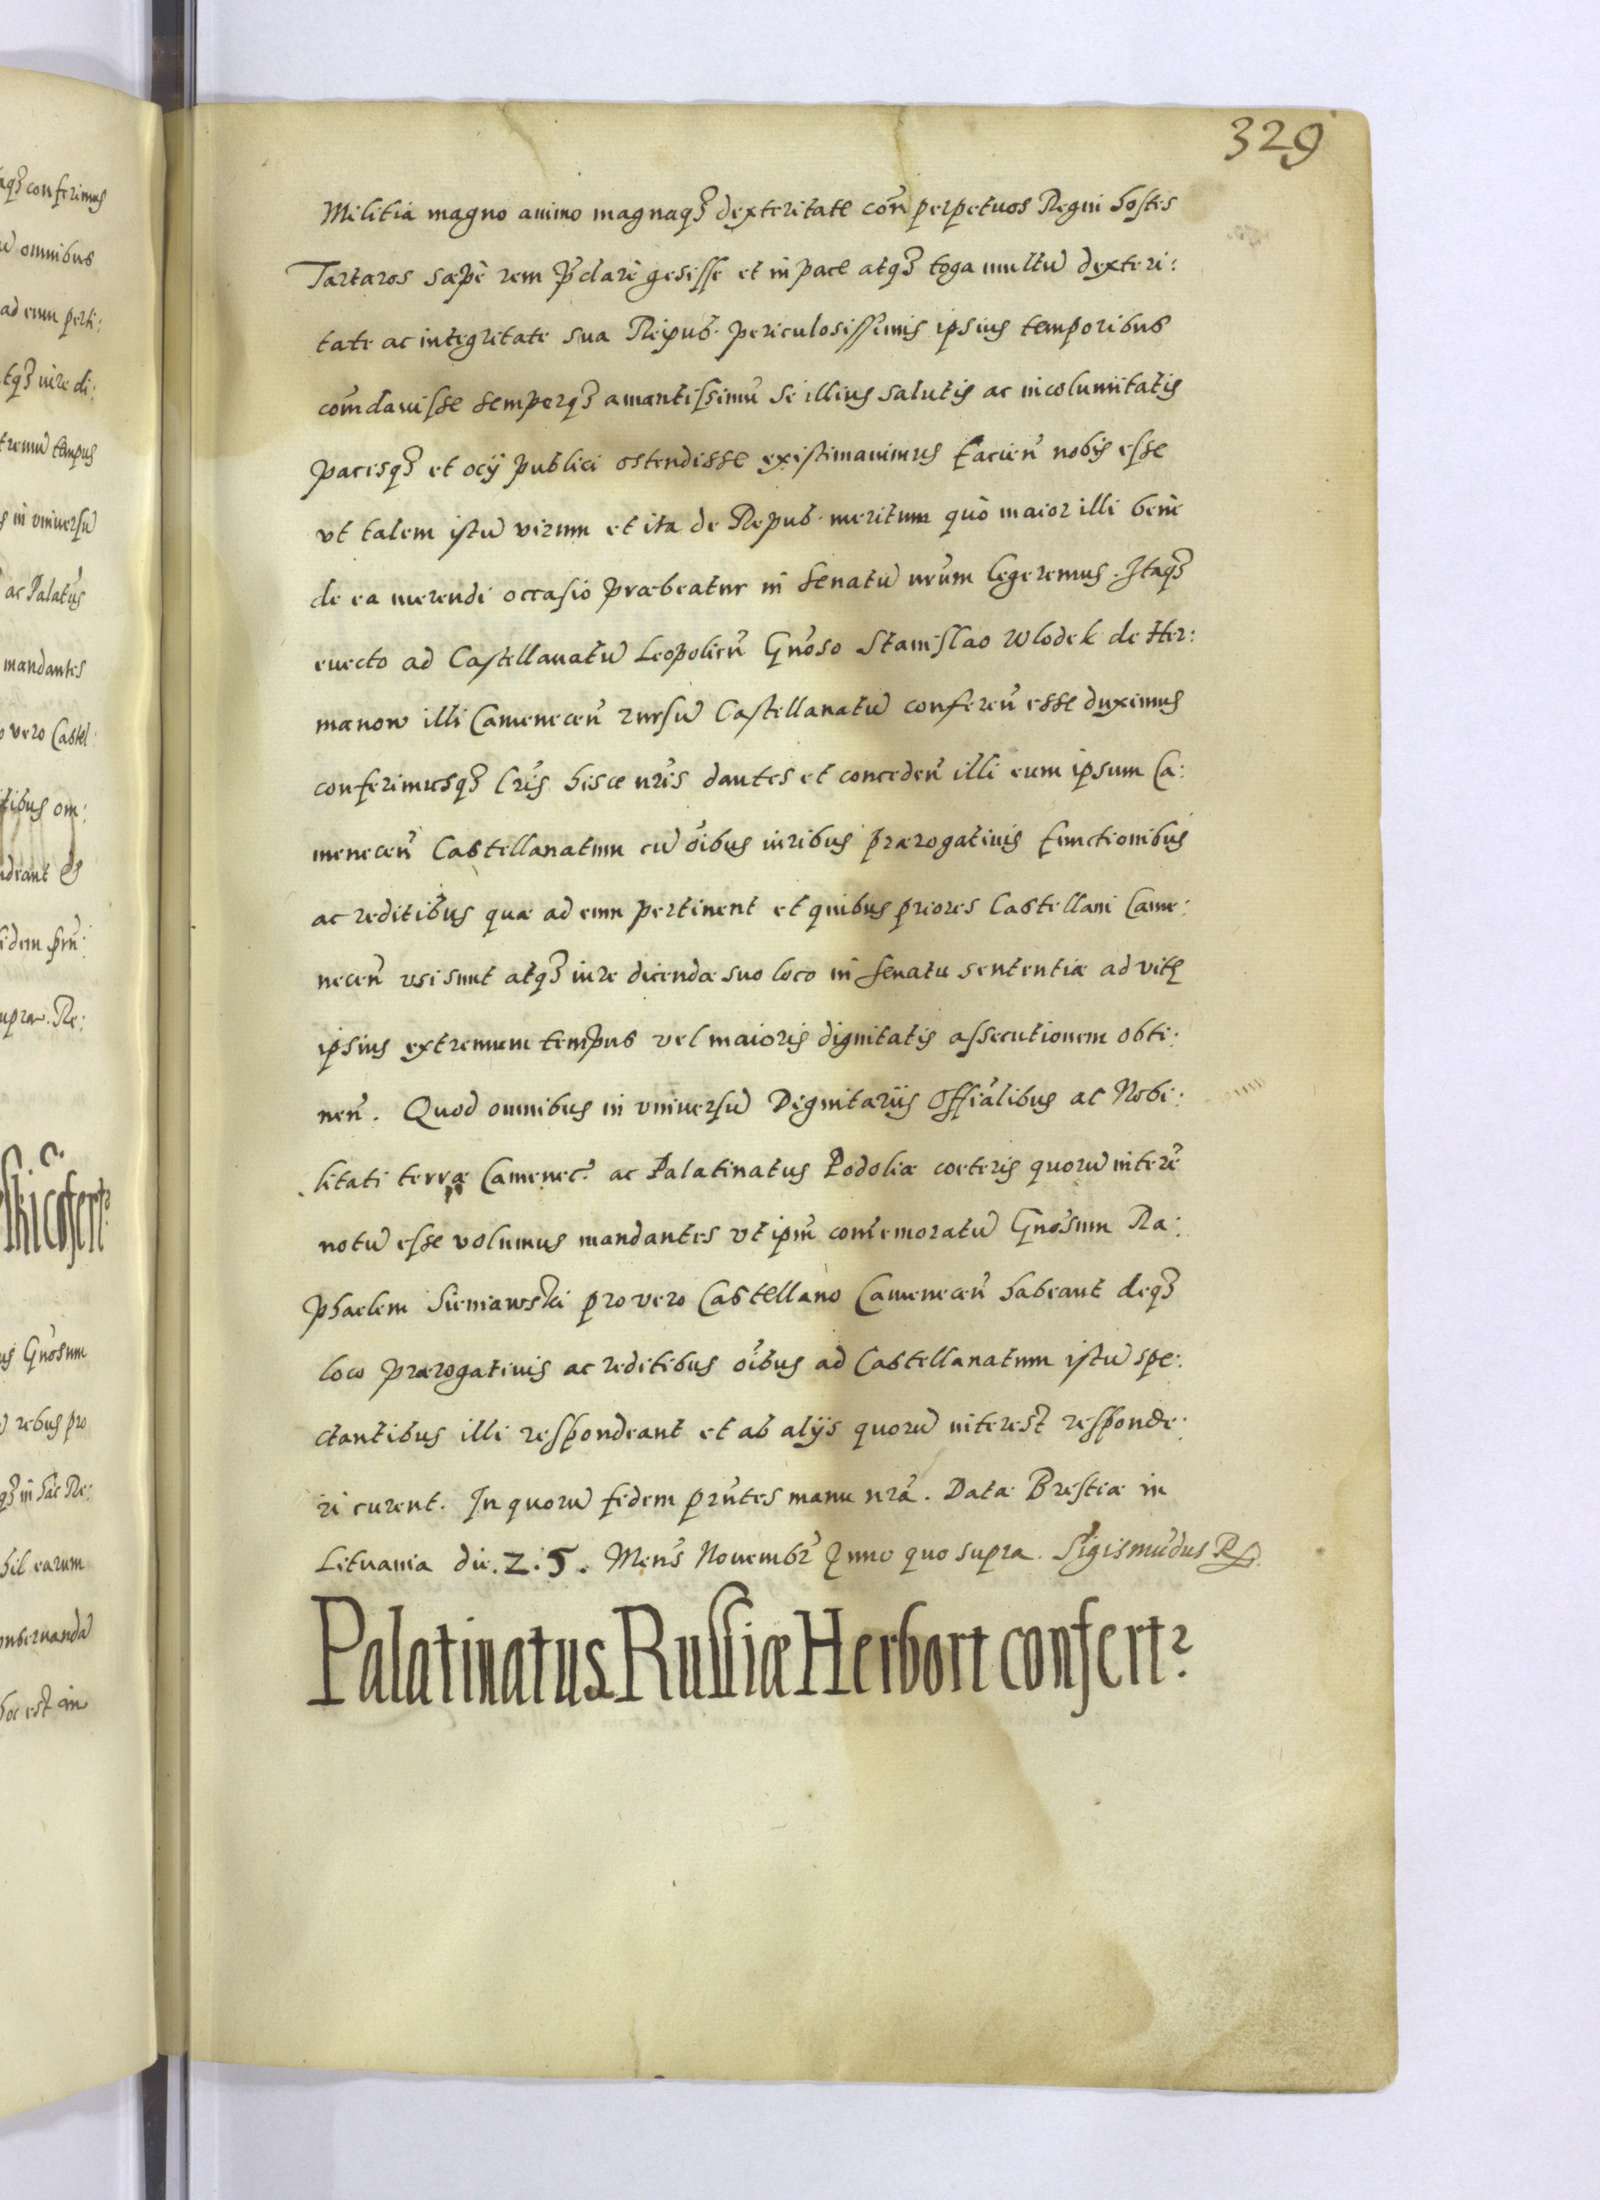 329
Militia magno animo magnaqꝫ dexteritate coñ perpetuos Regni hostes
Tartaros sæpè rem p̃clarè gesisse et in pace atqꝫ toga multũ dexteri:
tate ac integritate sua Reipub. periculosissimis ipsius temporibus
com̃davisse semperqꝫ amantissimũ se illius salutis ac incolumitatis
pacisqꝫ et ocÿ publici ostendisse existimavimus facieñ nobis esse
vt talem istũ virum et ita de Repub. meritum quò maior illi benè
de ea merendi occasio præbeatur in senatũ nr̃um legeremus. Itaqꝫ
evecto ad Castellanatũ Leopolieñ Gñoso Stanislao Wlodek de Her:
manow illi Cameneceñ rursũ Castellanatũ confereñ esse duximus
conferimusqꝫ lr̃is hisce nr̃is dantes et concedeñ illi eum ipsum Ca:
meneceñ Castellanatum cũ oĩbus iuribus prærogativis functionibus
ac reditibus quæ ad eum pertinent et quibus priores Castellani Came:
neceñ vsi sunt atqꝫ iure dicendæ suo loco in senatu sententiæ ad vitę
ipsius extremum tempus vel maioris dignitatis assecutionem obti:
neñ. Quod omnibus in vniversũ Dignitariis Offialibus ac Nobi:
litati terræ Camenec̃ ac Palatinatus Podoliæ cœteris quorũ interẽ
notũ esse volumus mandantes vt ip̃m com̃emoratũ Gñosum Ra:
phaelem Sieniawski pro vero Castellano Cameneceñ habeant deqꝫ
loco prærogativis ac reditibus oĩbus ad Castellanatum istũ spe:
ctantibus illi respondeant et ab alÿs quorũ interest responde:
ri curent. In quorũ fidem prñtes manu nrã. Datæ Brestiæ in
Lituania die. Z.5. Meñs Novembr̃ Anno quo supra. Sigismũdus Rx
Palatinatus Russiæ Herbort confertʳ